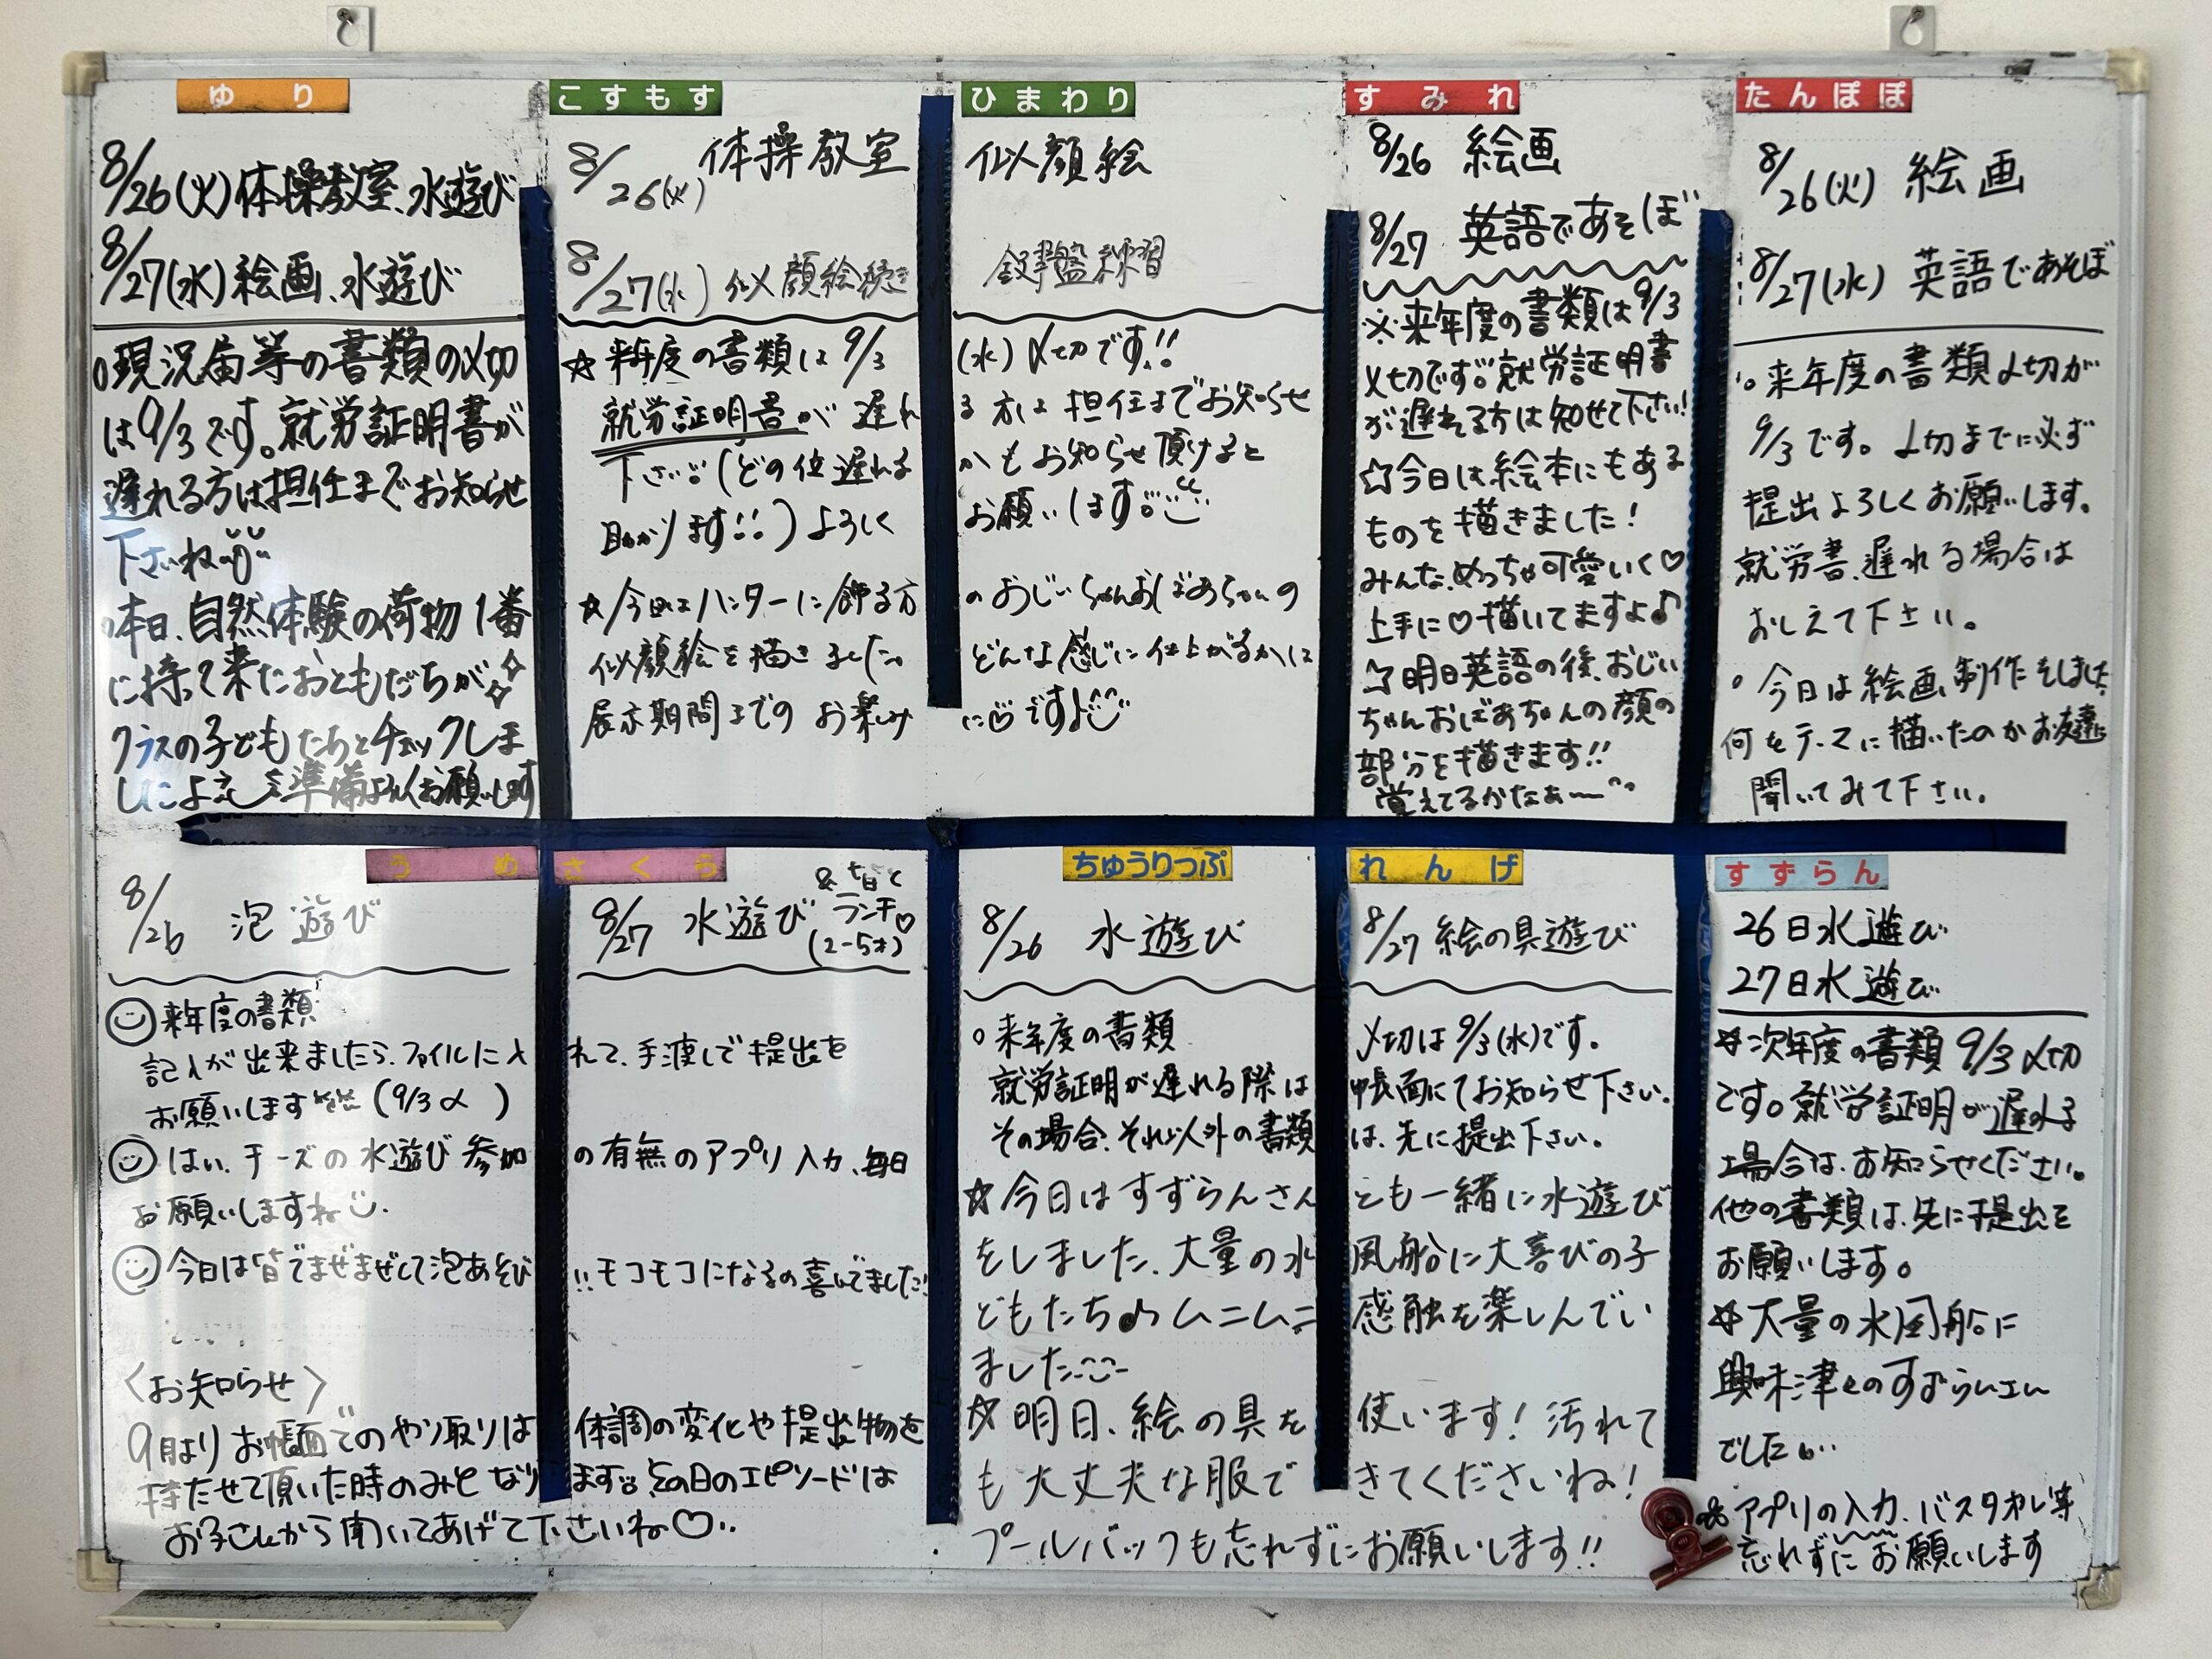 ゆり
8/26(火)体操教室、水遊び
8/27(水)絵画、水遊び
○現況届等の書類の〆切
は9/3です。就労証明書が
遅れる方は担任までお知らせ
下さいね
○本日、自然体験の荷物1番
に持って来たおともだちが
クラスの子どもたちとチェックしま
準備よろしくお願いします
こすもす ひまわり
8/26(火) 体操教室 似顔絵
8/27(水) 似顔絵続き 鍵盤練習
☆来年度の書類は9/3(水)〆切です!!
就労証明書が遅れる方は担任までお知らせ
下さい(どの位遅れるかもお知らせ頂けると
助かります!!)よろしくお願いします
☆今日はハンターに飾る方のおじいちゃんおばあちゃんの
似顔絵を描きました。どんな感じに仕上がるかは
展示期間までのお楽しみに♡です♪
すみれ
8/26 絵画
8/27 英語であそぼ
※来年度の書類は9/3
〆切です。就労証明書
が遅れる方は知せて下さい!
☆今日は絵本にもある
ものを描きました!
みんな、めっちゃ可愛いく♡
上手に♡描いてますよ♪
☆明日英語の後、おじい
ちゃんおばあちゃんの顔の
部分を描きます!!
覚えてるかなぁ〜
たんぽぽ
8/26(火) 絵画
8/27(水) 英語であそぼ
○来年度の書類〆切が
9/3です。〆切までに必ず
提出よろしくお願いします。
就労書、遅れる場合は
おしえて下さい。
○今日は絵画制作をしました
何をテーマに描いたのかお友達に
聞いてみて下さい。
うめ さくら
8/26 泡遊び 8/27 水遊び &七日くランチ♡(2-5才)
来年度の書類
記入が出来ましたら、ファイルに入れて、手渡しで提出を
お願いします(9/3〆)
はい、チーズの水遊び参加の有無のアプリ入力、毎日
お願いしますね
今日は皆でまぜまぜして泡あそび!!モコモコになるの喜んでました!
〈お知らせ〉
9月よりお帳面でのやり取りは体調の変化や提出物を
持たせて頂いた時のみとなります。その日のエピソードは
お子さんから聞いてあげて下さいね♡
ちゅうりっぷ れんげ
8/26 水遊び 8/27 絵の具遊び
○来年度の書類 〆切は9/3(水)です。
就労証明が遅れる際は帳面にてお知らせ下さい。
その場合、それ以外の書類は、先に提出下さい。
☆今日はすずらんさんとも一緒に水遊び
をしました。大量の水風船に大喜びの子
どもたち♪ムニムニ感触を楽しんでい
ました
☆明日、絵の具を使います!汚れて
も大丈夫な服できてくださいね!
プールバックも忘れずにお願いします!!
すずらん
26日水遊び
27日水遊び
☆次年度の書類9/3〆切
です。就労証明が遅れる
場合は、お知らせください。
他の書類は、先に提出を
お願いします。
☆大量の水風船に
興味津々のすずらんさん
でした
アプリの入力、バスタオル等
忘れずにお願いします